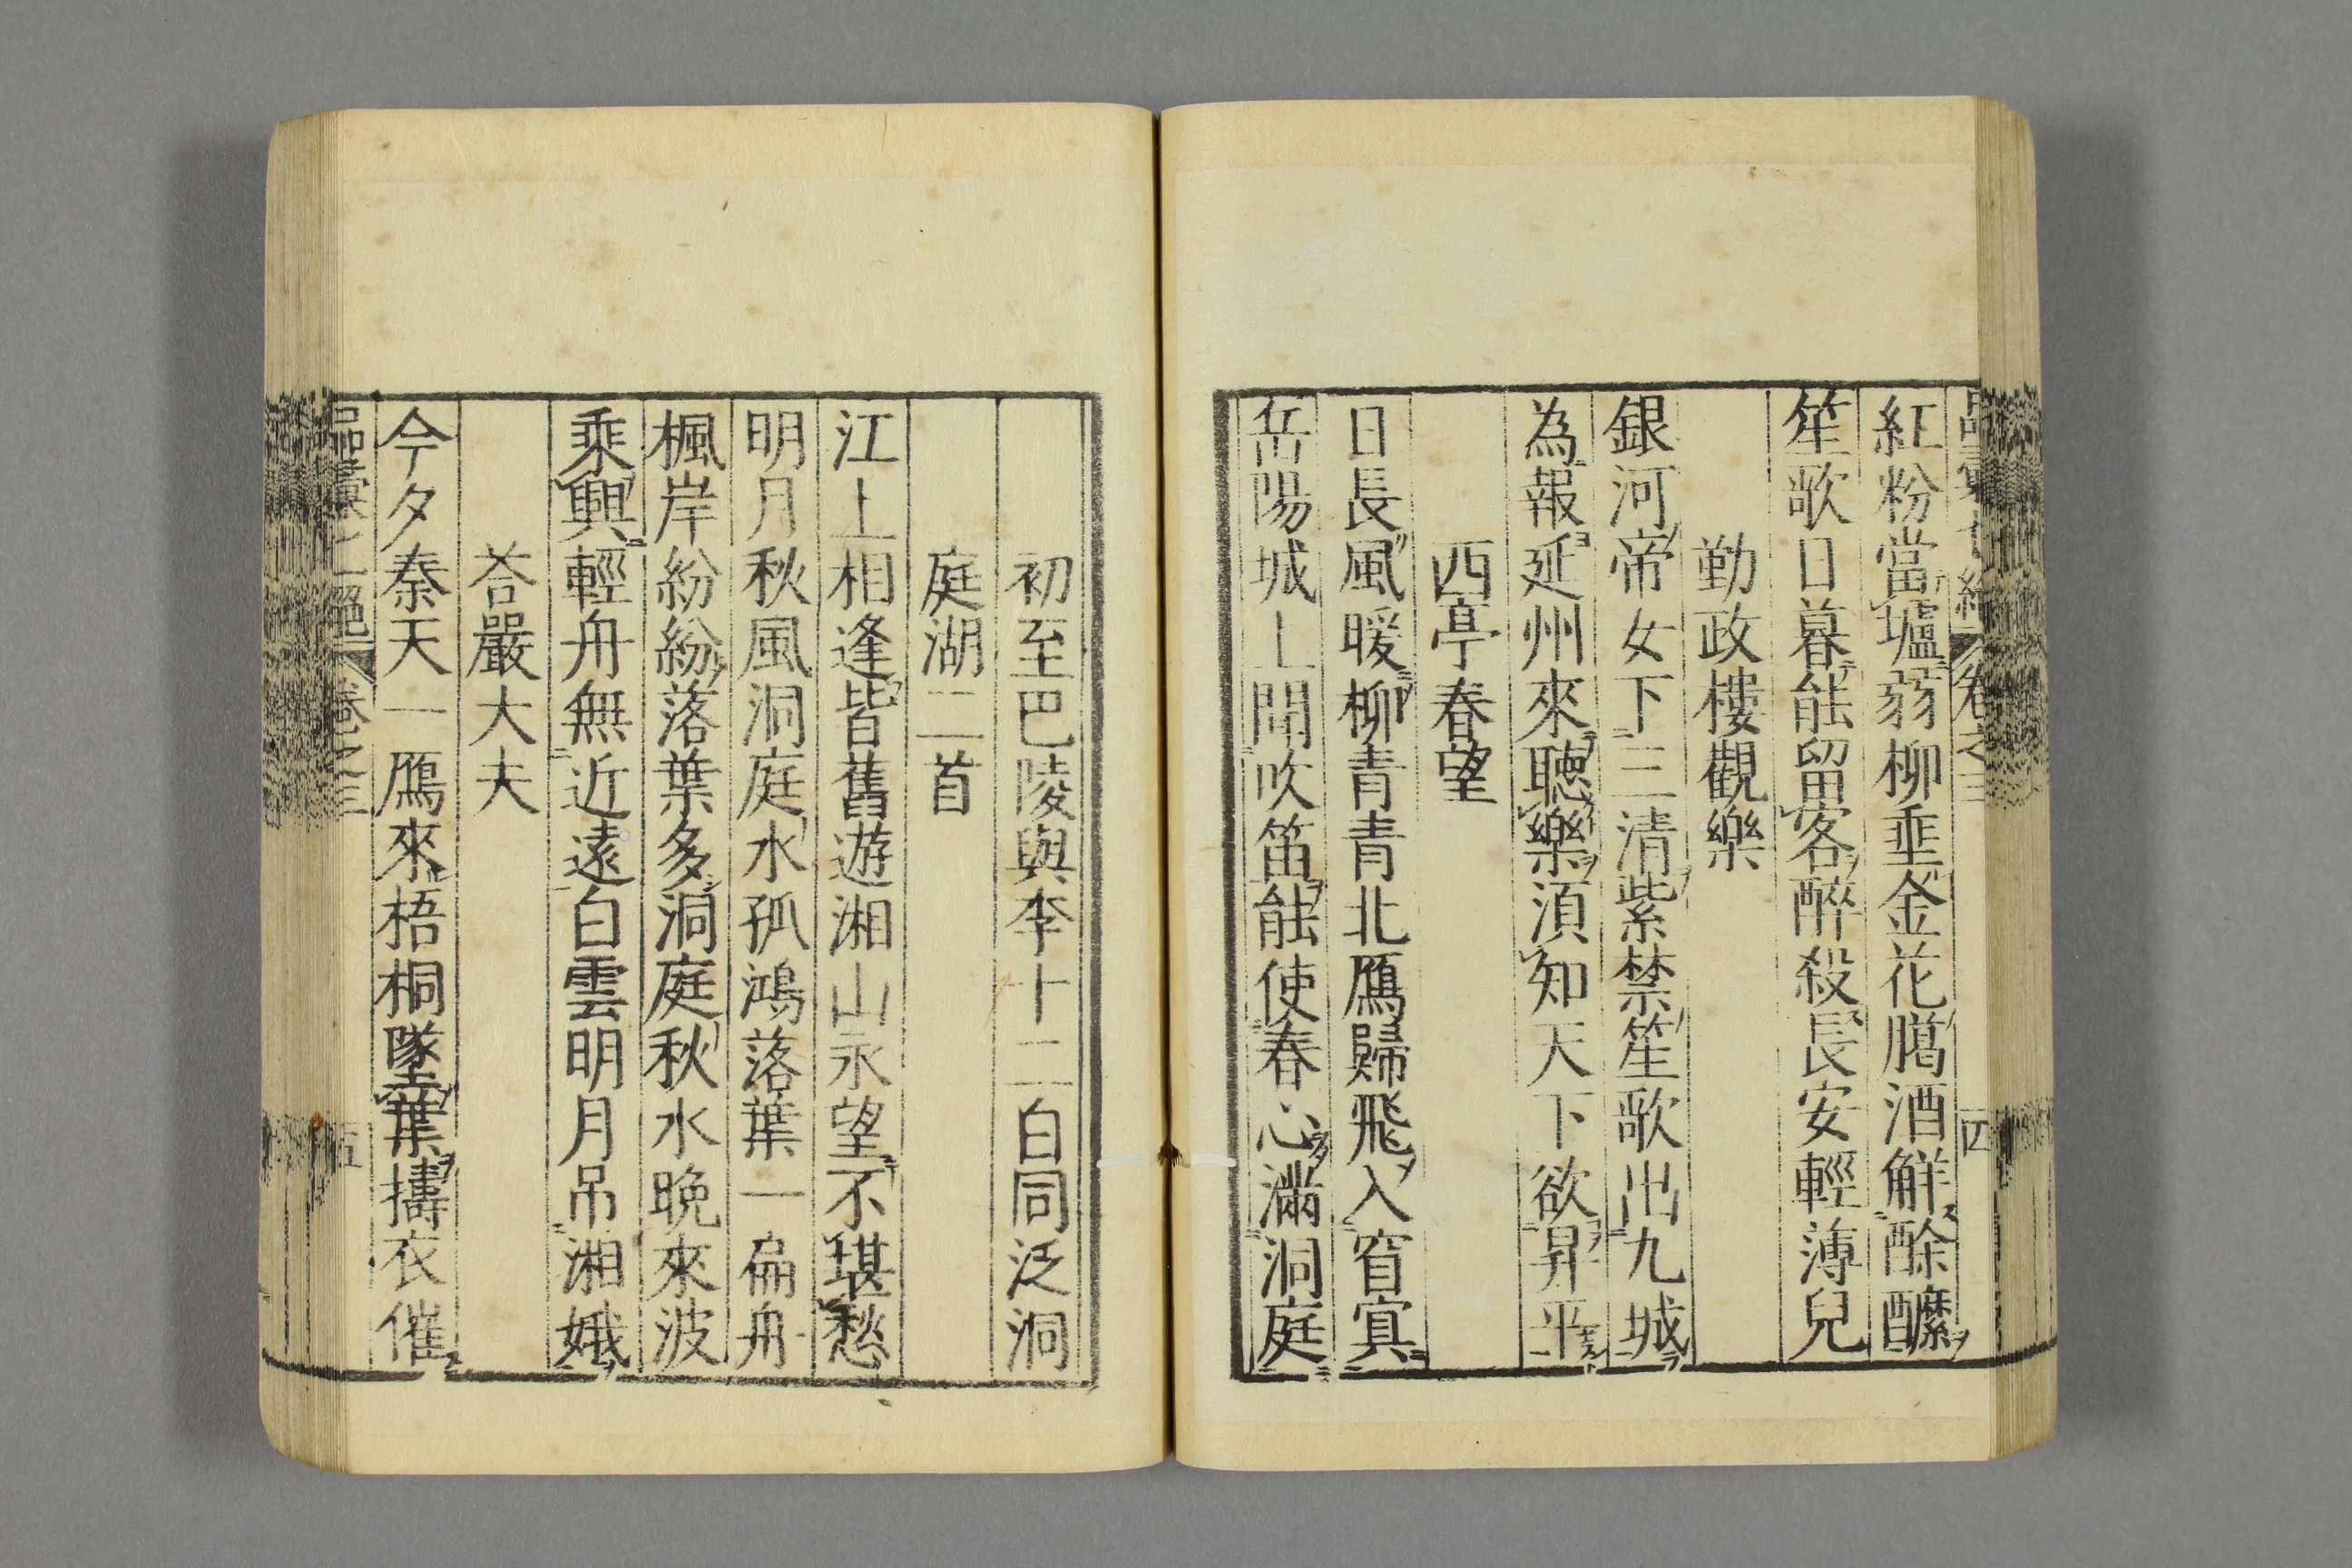 紅粉當壚弱柳垂金花臈酒觧酴醿
笙歌日暮能留客醉殺長安輕薄兒
勤政樓觀樂
銀河帝女下三清紫禁笙歌出九城
為報延州來聽樂湏知天下欲昇平
西亭春望
日長風暖柳青青北鴈歸飛入窅冥
岳陽城上聞吹笛能使春心滿洞庭
初至巴陵與李十二白同泛洞
庭湖二首
江上相逢皆舊遊湘山永望不堪愁
明月秋風洞庭水孤鴻落葉一扁舟
楓岸紛紛落葉多洞庭秋水晚來波
乘興輕舟無近遠白雲明月吊湘娥
荅嚴大夫
今夕秦天一鴈來梧桐墜葉擣衣催
品彙七絕 卷之三 五